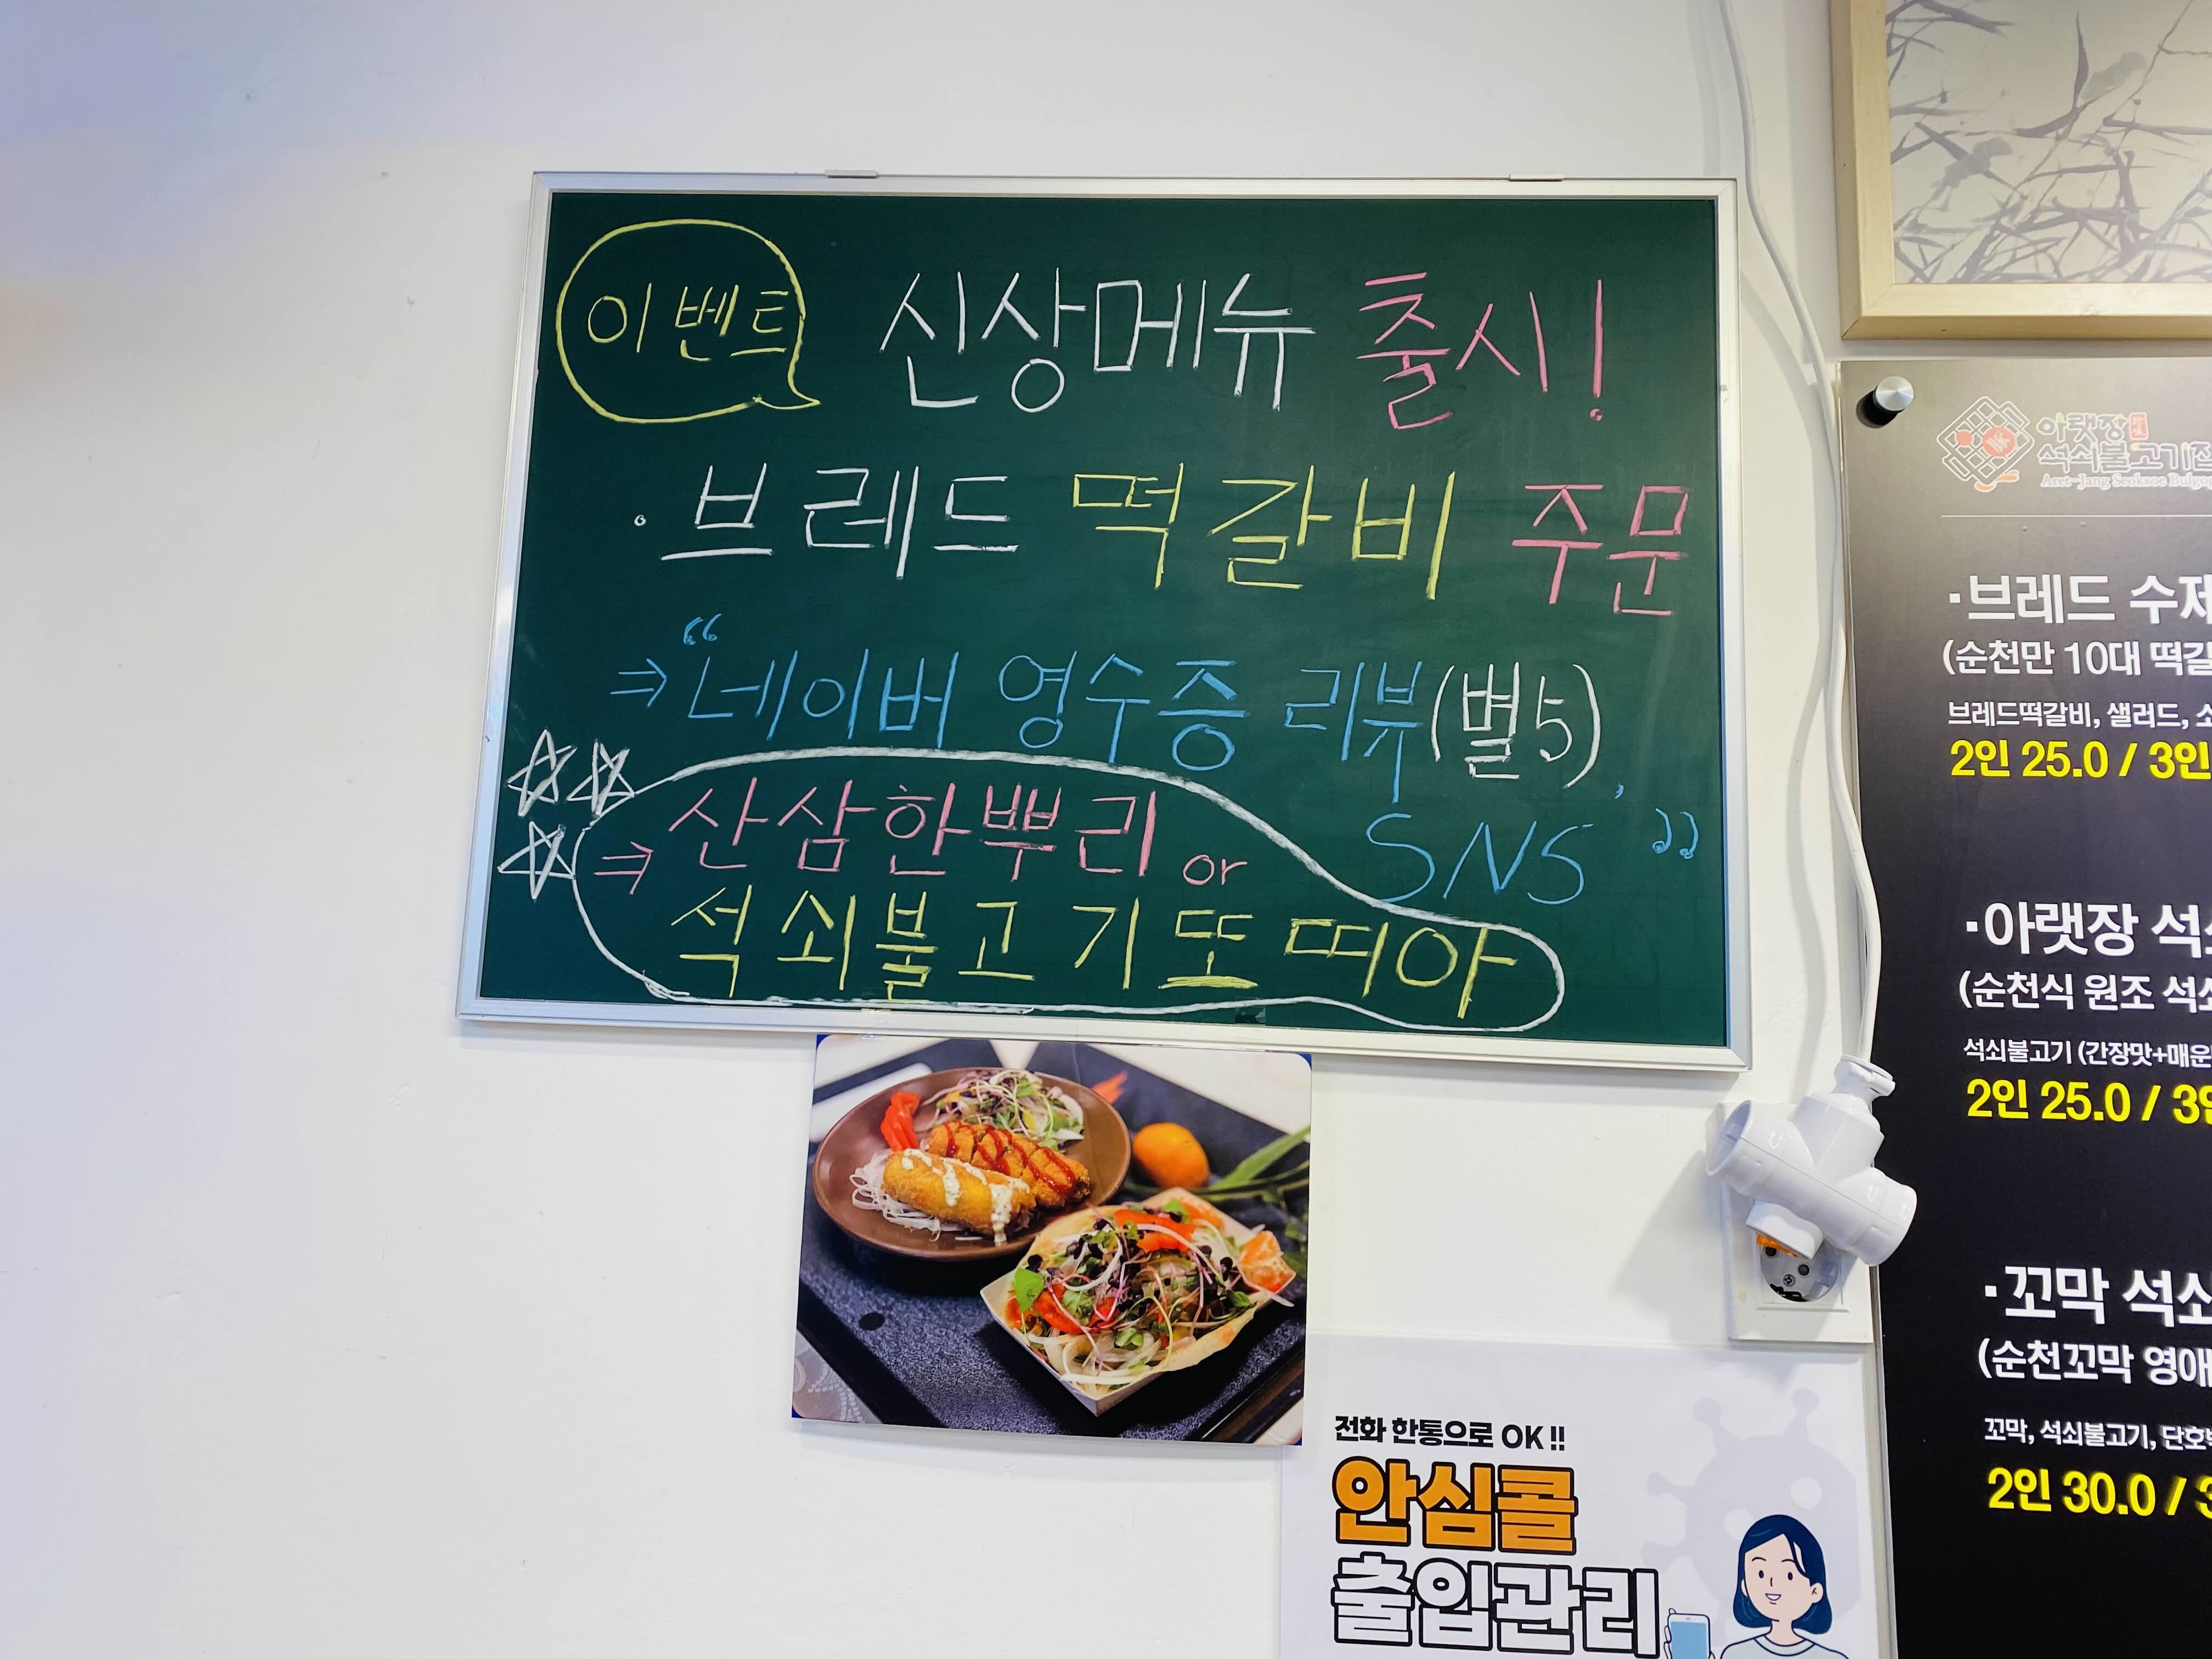 이벤트
신상메뉴 출시!
· 브레드 떡갈비 주문
⇒ “네이버 영수증 리뷰(별5),
SNS ”
⇒ 산삼한뿌리 or
석쇠불고기또띠아
아랫장
석쇠불고기집
Aret-Jang Seoksoe
·브레드 수제
(순천만 10대 떡갈
브레드떡갈비, 샐러드, 소
2인 25.0 / 3인
·아랫장 석쇠
(순천식 원조 석쇠
석쇠불고기 (간장맛+매운
2인 25.0 / 3인
·꼬막 석쇠
(순천꼬막 영애
꼬막, 석쇠불고기, 단호박
2인 30.0 / 3
전화 한통으로 OK !!
안심콜
출입관리